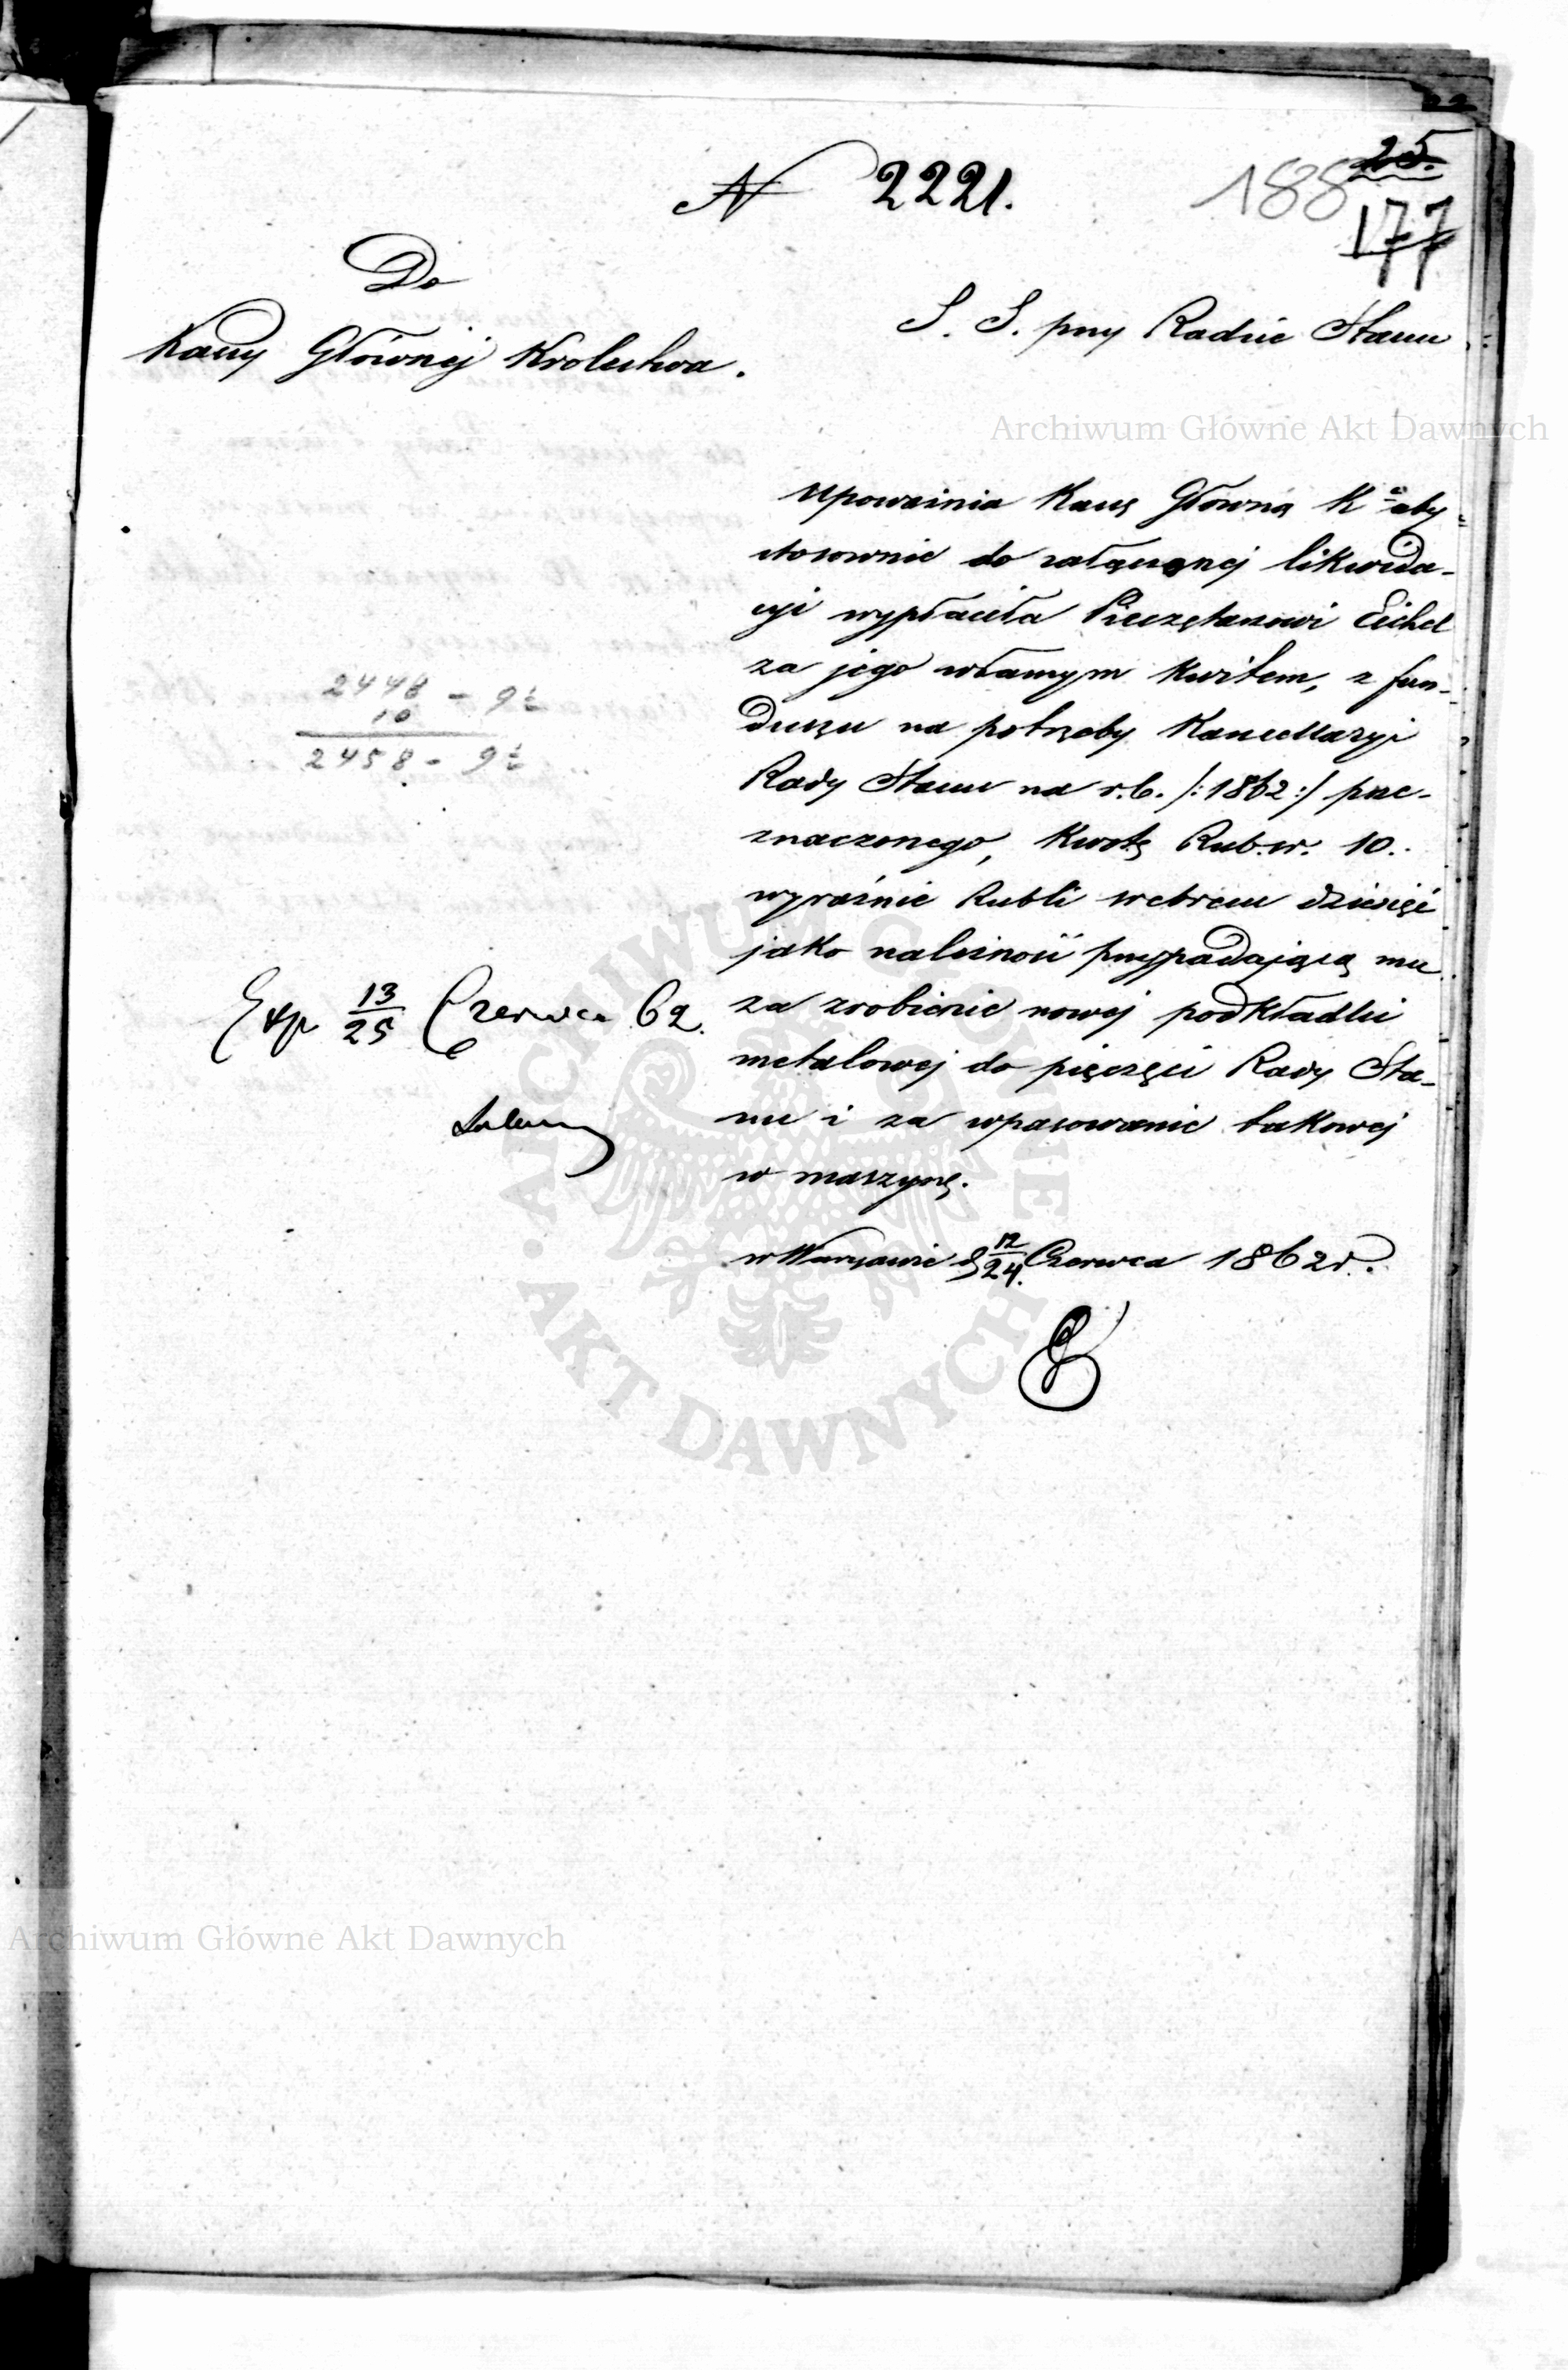 N 2221.
188
25.
177
Do
Kassy Głównej Królestwa.
S. S. przy Radzie Stanu
Upoważnia Kassę Główną K<sup>a</sup> aby
stosownie do załączonej likwida-
cyi wypłaciła Pieczętarzowi Eichel
za jego własnym kwitem, z fun-
duszu na potrzeby Kancellaryi
Rady Stanu na r.b. /:1862:/ prze-
znaczonego, kwotę Rub.sr. 10.
wyraźnie Rubli srebrem dziesięć
jako należność przypadającą mu
za zrobienie nowej podkładki
metalowej do pieczęci Rady Sta-
nu i za wpasowanie takowej
w maszynę.
w Warszawie d. 12/24. Czerwca 1862 r.
2448 - 9½
10
2458 - 9½
Exp 13/25 Czerwca 62.
Archiwum Główne Akt Dawnych
Archiwum Główne Akt Dawnych
ARCHIWUM GŁÓWNE AKT DAWNYCH